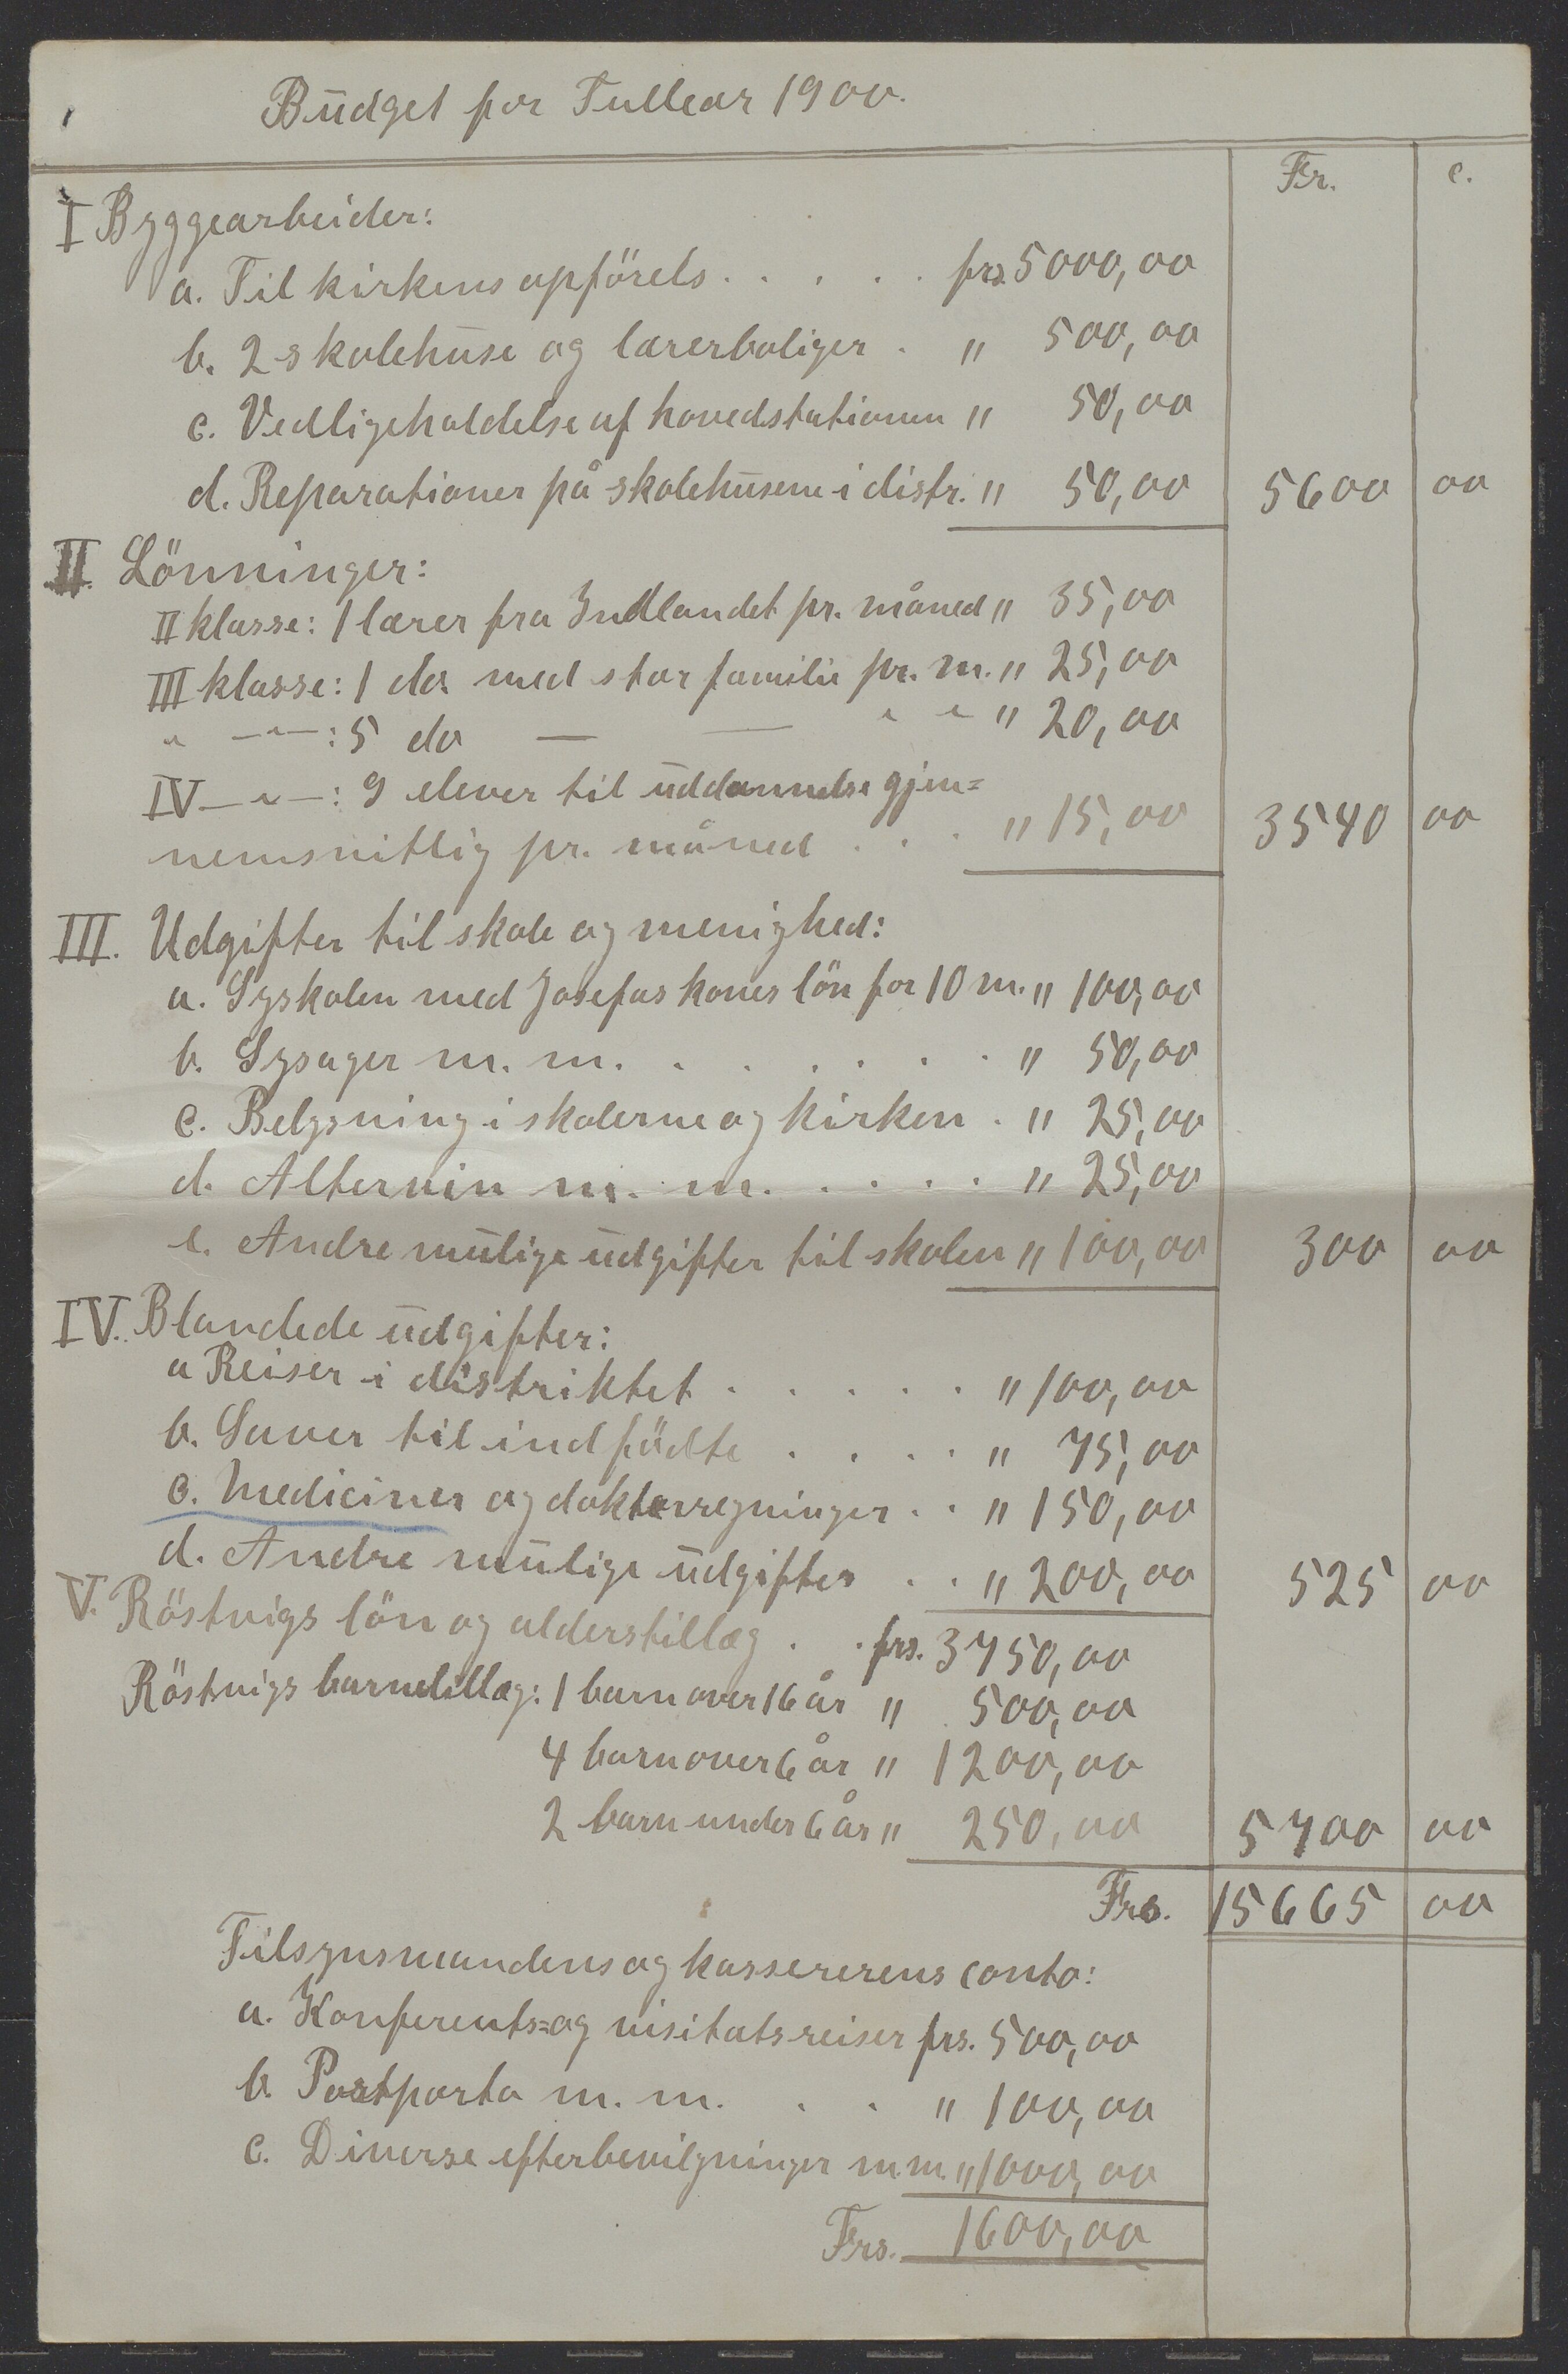 Budget for Tullear 1900.
Fr. c.
I Byggearbeider:
a. Til kirkens opförels . . . . . frs. 5000,00
b. 2 skolehuse og lærerboliger . " 500,00
c. Vedligeholdelse af hovedstationen " 50,00
d. Reparationer på skolehusene i distr. " 50,00 5600 00
II. Lönninger:
II klasse: 1 lærer fra Indlandet pr. måned " 35,00
III klasse: 1 do med stor familie pr. m. " 25,00
" —"—: 5 do — — " " " 20,00
IV —"—: 9 elever til uddannelse gjen=
nemsnitlig pr. måned . . . " 15,00 3540 00
III. Udgifter til skole og menighed:
a. Syskolen med Josefas kones lön for 10 m. " 100,00
b. Sysager m. m. . . . . . . " 50,00
c. Belysning i skolerne og kirken . " 25,00
d. Altervin m. m. . . . . . " 25,00
e. Andre mulige udgifter til skolen " 100,00 300 00
IV. Blandede udgifter:
a Reiser i distriktet . . . . . " 100,00
b. Gaver til indfödte . . . . " 75,00
c. Mediciner og doktorregninger . . " 150,00
d. Andre mulige udgifter . . " 200,00 525 00
V. Röstvigs lön og alderstillæg . . frs. 3750,00
Röstvigs barnetillæg: 1 barn over 16 år " 500,00
4 barn over 6 år " 1200,00
2 barn under 6 år " 250,00 5700 00
Frs. 15665 00
Tilsynsmandens og kassererens conto:
a. Konferents= og visitatsreiser frs. 500,00
b. Postporto m. m. . . " 100,00
c. Diverse efterbevilgninger m.m. " 1000,00
Frs. 1600,00